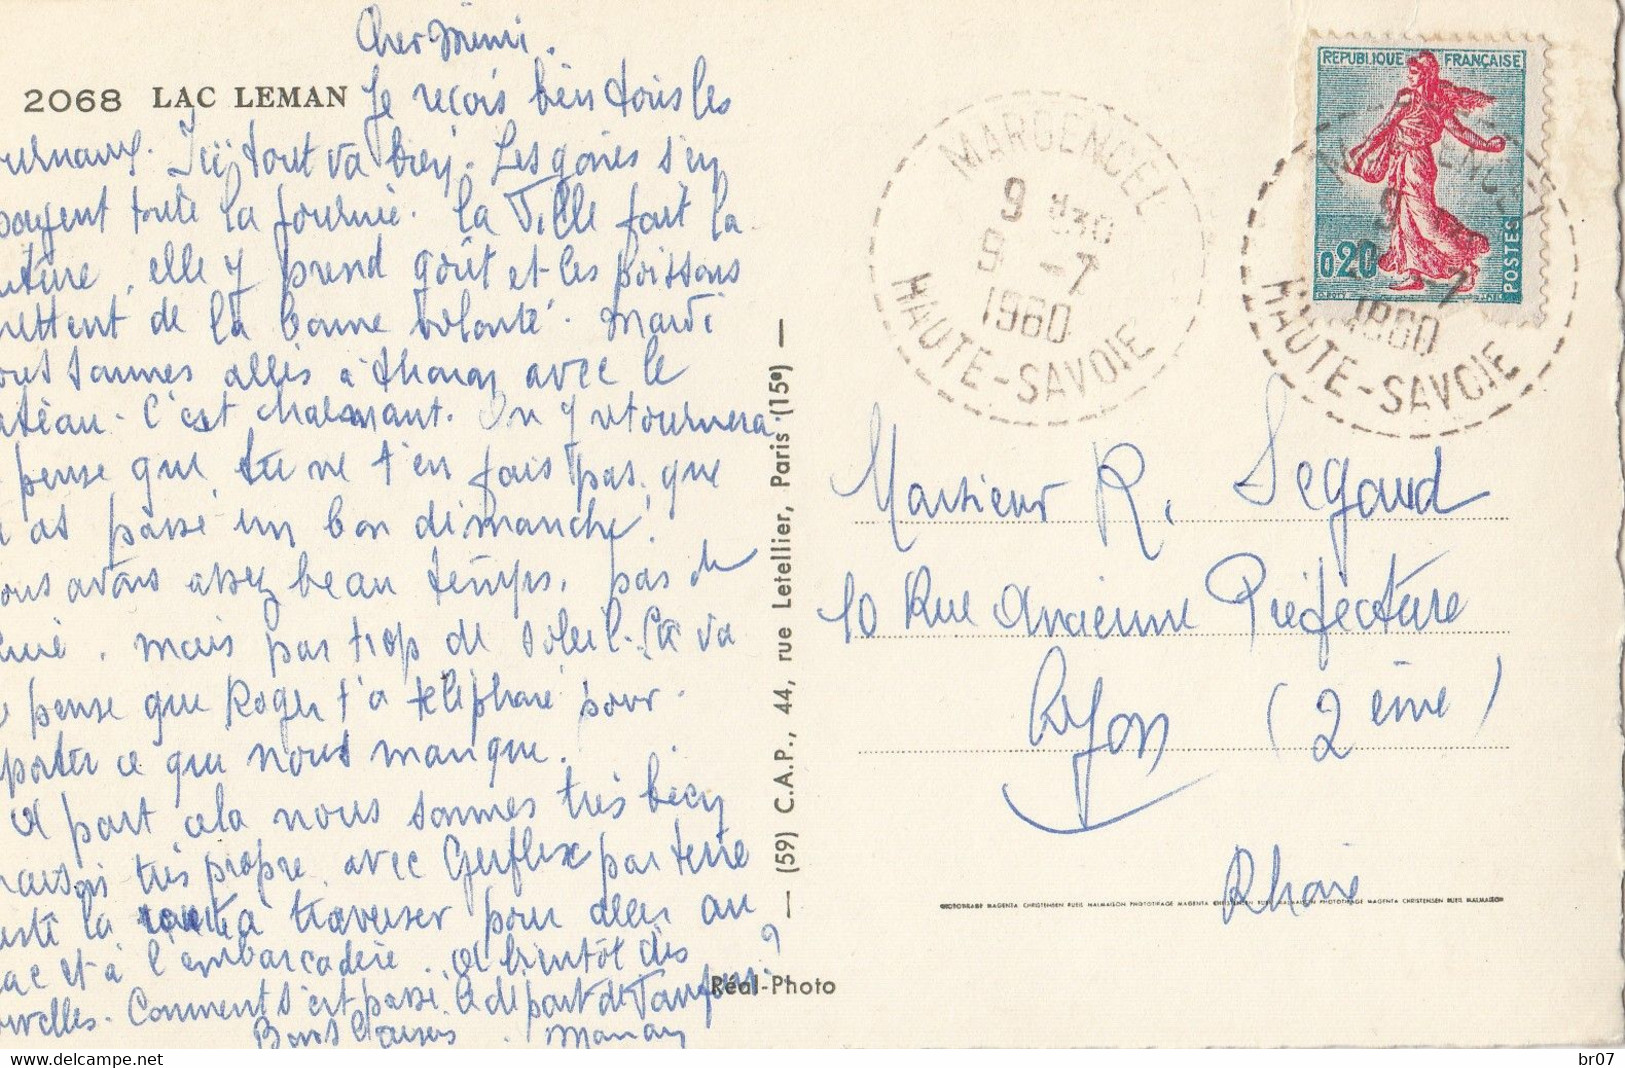 Cher Mimi.
2068 LAC LEMAN
Je reçois bien tous les
ournaux. Ici tout va bien. Les gones s'en
payent toute la journée. La Ville fait la
elle y prend goût et les poissons
mettent de la bonne volonté. Mardi
ous sommes allés à Thonon avec le
ateau. C'est charmant. On y retournera
pense que tu ne t'en fais pas, que
u as passé un bon dimanche.
ous avons assez beau temps, pas de
pluie, mais pas trop de soleil. Ça va
e pense que Roger t'a téléphoné pour
pporter ce que nous manque.
A part cela nous sommes très bien
maison très propre, avec Gerflex par terre
uste la route à traverser pour aller au
ac et à l'embarcadère. A bientôt des
ouvelles. Comment s'est passé le départ de
Bons baisers. Manou
REPUBLIQUE FRANÇAISE
0,20
POSTES
MARGENCEL
9 H30
9 -7
1960
HAUTE-SAVOIE
MARGENCEL
9
9 -7
1960
HAUTE-SAVOIE
Monsieur R. Segaud
10 Rue Ancienne Préfecture
Lyon (2ème)
Rhône
— (59) C.A.P., 44, rue Letellier, Paris (15e) —
PHOTOTIRAGE MAGENTA CHRISTENSEN RUEIL MALMAISON PHOTOTIRAGE MAGENTA CHRISTENSEN RUEIL MALMAISON PHOTOTIRAGE MAGENTA CHRISTENSEN RUEIL MALMAISON
Réal-Photo
delcampe.net
br07